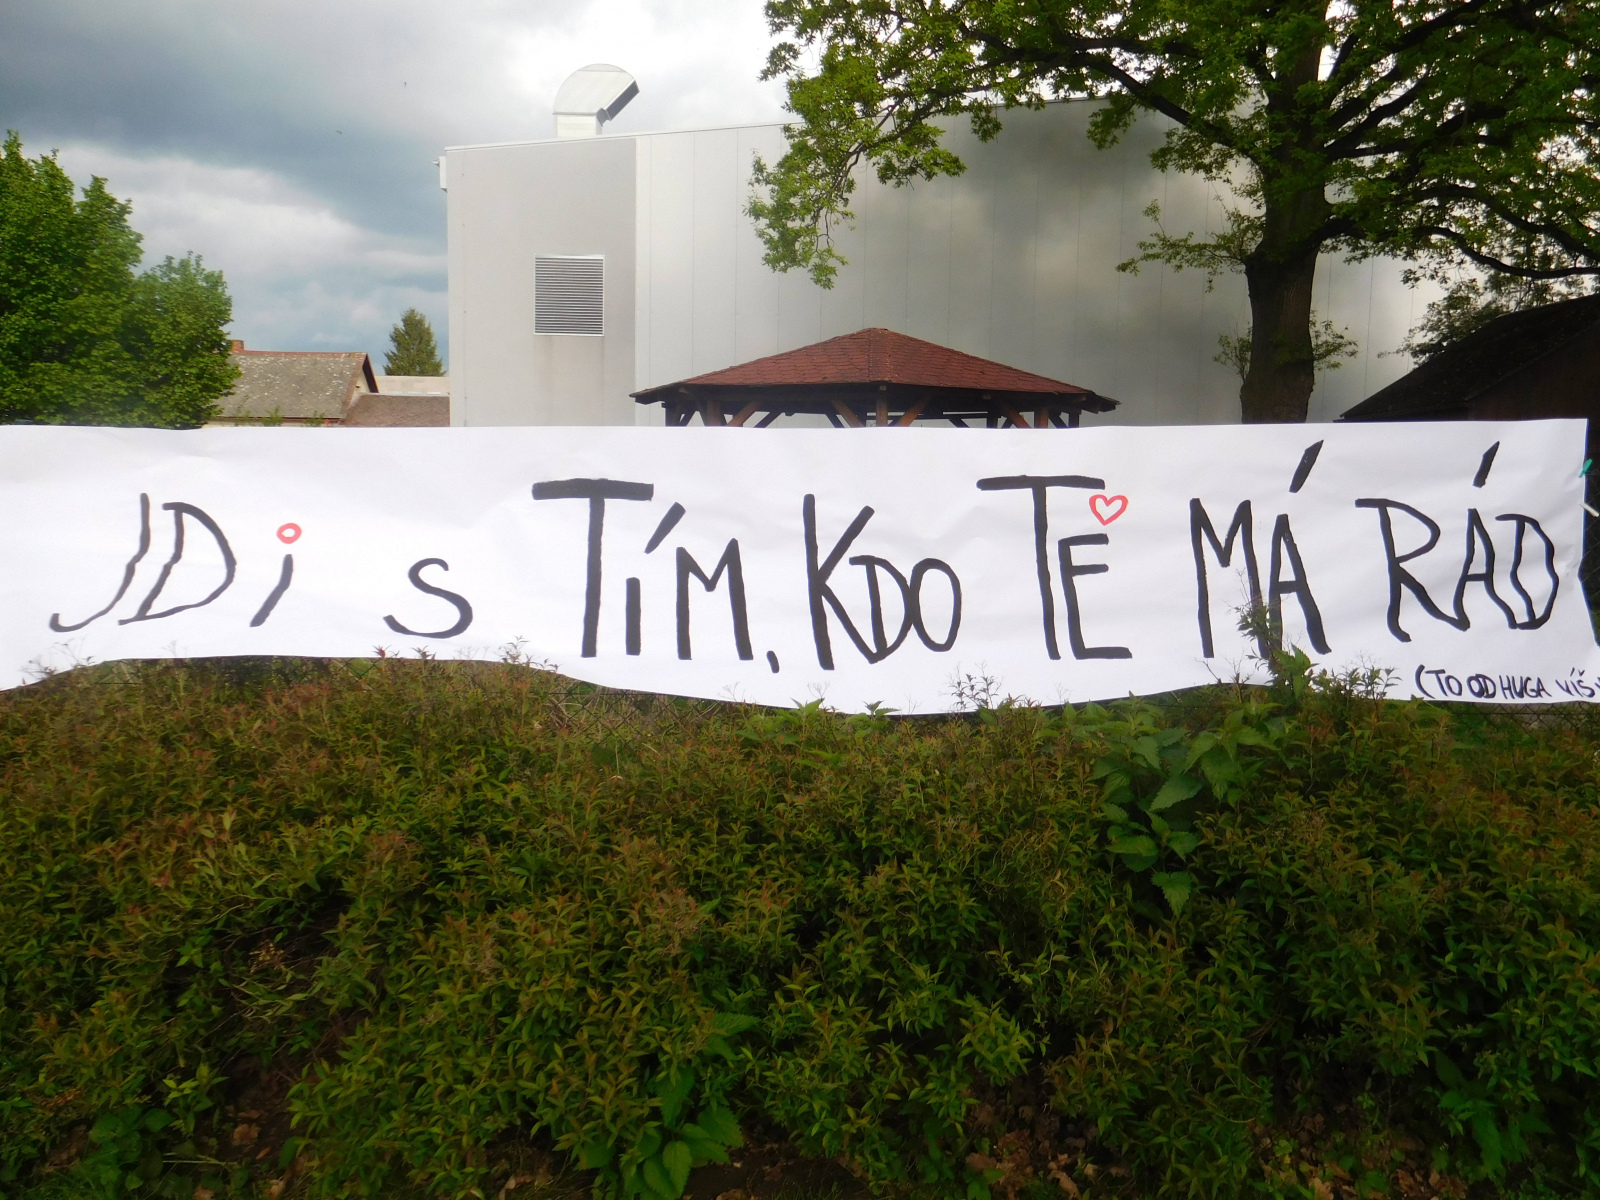 JDi s TíM, KDO TĚ MÁ RÁD
(TO OD HUGA VÍŠ